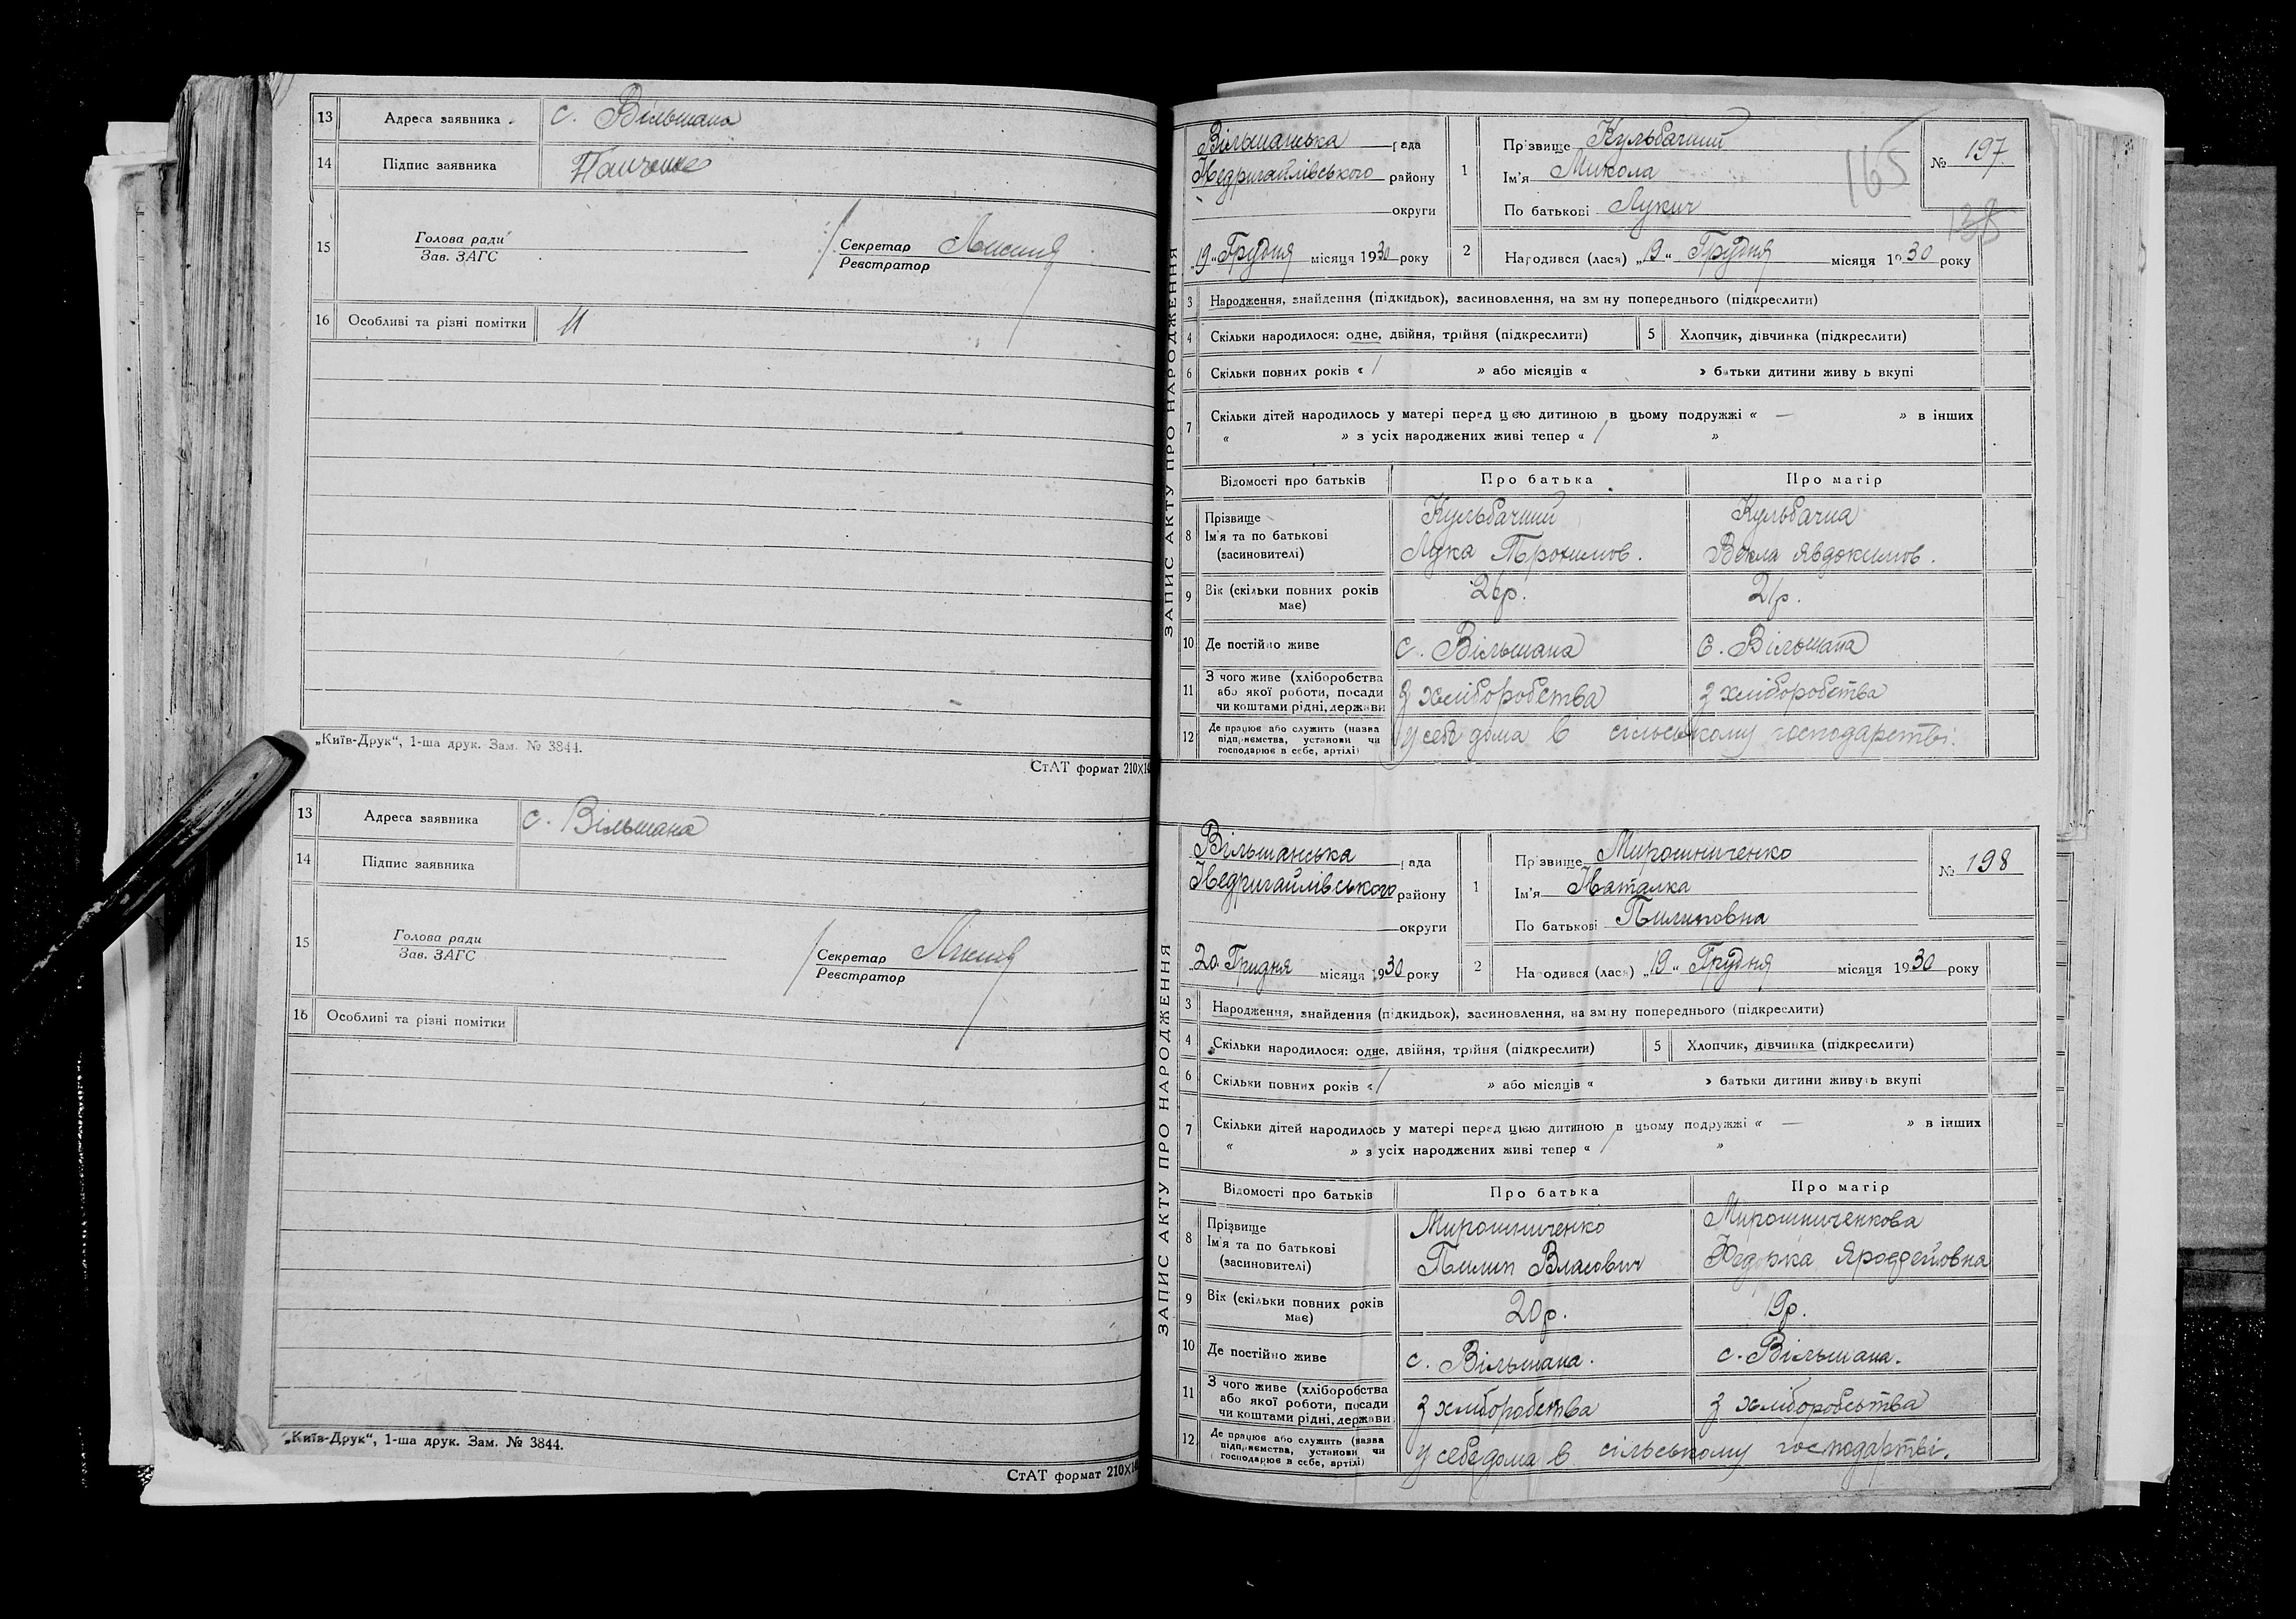 13 Адреса заявника с. Вільшана
14 Підпис заявника Панченко
15 Голова ради Секретар
Зав. ЗАГС Реєстратор
16 Особливі та різні помітки
„Київ-Друк“, 1-ша друк. Зам. № 3844.
СтАТ формат 210×14
13 Адреса заявника с. Вільшана
14 Підпис заявника
15 Голова ради Секретар
Зав. ЗАГС Реєстратор
16 Особливі та різні помітки
„Київ-Друк“, 1-ша друк. Зам. № 3844.
СтАТ формат 210×14
ЗАПИС АКТУ ПРО НАРОДЖЕННЯ
Вільшанська рада
Недригайлівського району
округи
„19“ Грудня місяця 1930 року
1 Прізвище Кульбачний
Ім'я Микола
По батькові Лукич
165
№ 197
138
2 Народився (лася) „19“ Грудня місяця 1930 року
3 Народження, знайдення (підкидьок), засиновлення, на зміну попереднього (підкреслити)
4 Скільки народилося: одне, двійня, трійня (підкреслити) 5 Хлопчик, дівчинка (підкреслити)
6 Скільки повних років « / » або місяців « » батьки дитини живуть вкупі
7 Скільки дітей народилось у матері перед цією дитиною в цьому подружжі « — » в інших
« » з усіх народжених живі тепер « / »
Відомості про батьків Про батька Про матір
8 Прізвище Кульбачний Кульбачна
Ім'я та по батькові Лука Трохимов. Векла Явдокимов.
(засиновителі)
9 Вік (скільки повних років має) 26р. 21р.
10 Де постійно живе с. Вільшана с. Вільшана
11 З чого живе (хліборобства з хліборобства з хліборобства
або якої роботи, посади
чи коштами рідні, держави
12 Де працює або служить (назва у себе дома в сільському господарстві.
підприємства, установи чи
господарює в себе, артілі)
ЗАПИС АКТУ ПРО НАРОДЖЕННЯ
Вільшанська рада
Недригайлівського району
округи
„20“ Грудня місяця 1930 року
1 Прізвище Мирошниченко
Ім'я Наталка
По батькові Пилиповна
№ 198
2 Народився (лася) „19“ Грудня місяця 1930 року
3 Народження, знайдення (підкидьок), засиновлення, на зміну попереднього (підкреслити)
4 Скільки народилося: одне, двійня, трійня (підкреслити) 5 Хлопчик, дівчинка (підкреслити)
6 Скільки повних років « / » або місяців « » батьки дитини живуть вкупі
7 Скільки дітей народилось у матері перед цією дитиною в цьому подружжі « — » в інших
« » з усіх народжених живі тепер « / »
Відомості про батьків Про батька Про матір
8 Прізвище Мирошниченко Мирошниченкова
Ім'я та по батькові Пилип Власович
(засиновителі)
9 Вік (скільки повних років має) 20р. 19р.
10 Де постійно живе с. Вільшана. с. Вільшана.
11 З чого живе (хліборобства з хліборобства з хліборобства
або якої роботи, посади
чи коштами рідні, держави
12 Де працює або служить (назва у себе дома в сільському господартві.
підприємства, установи чи
господарює в себе, артілі)